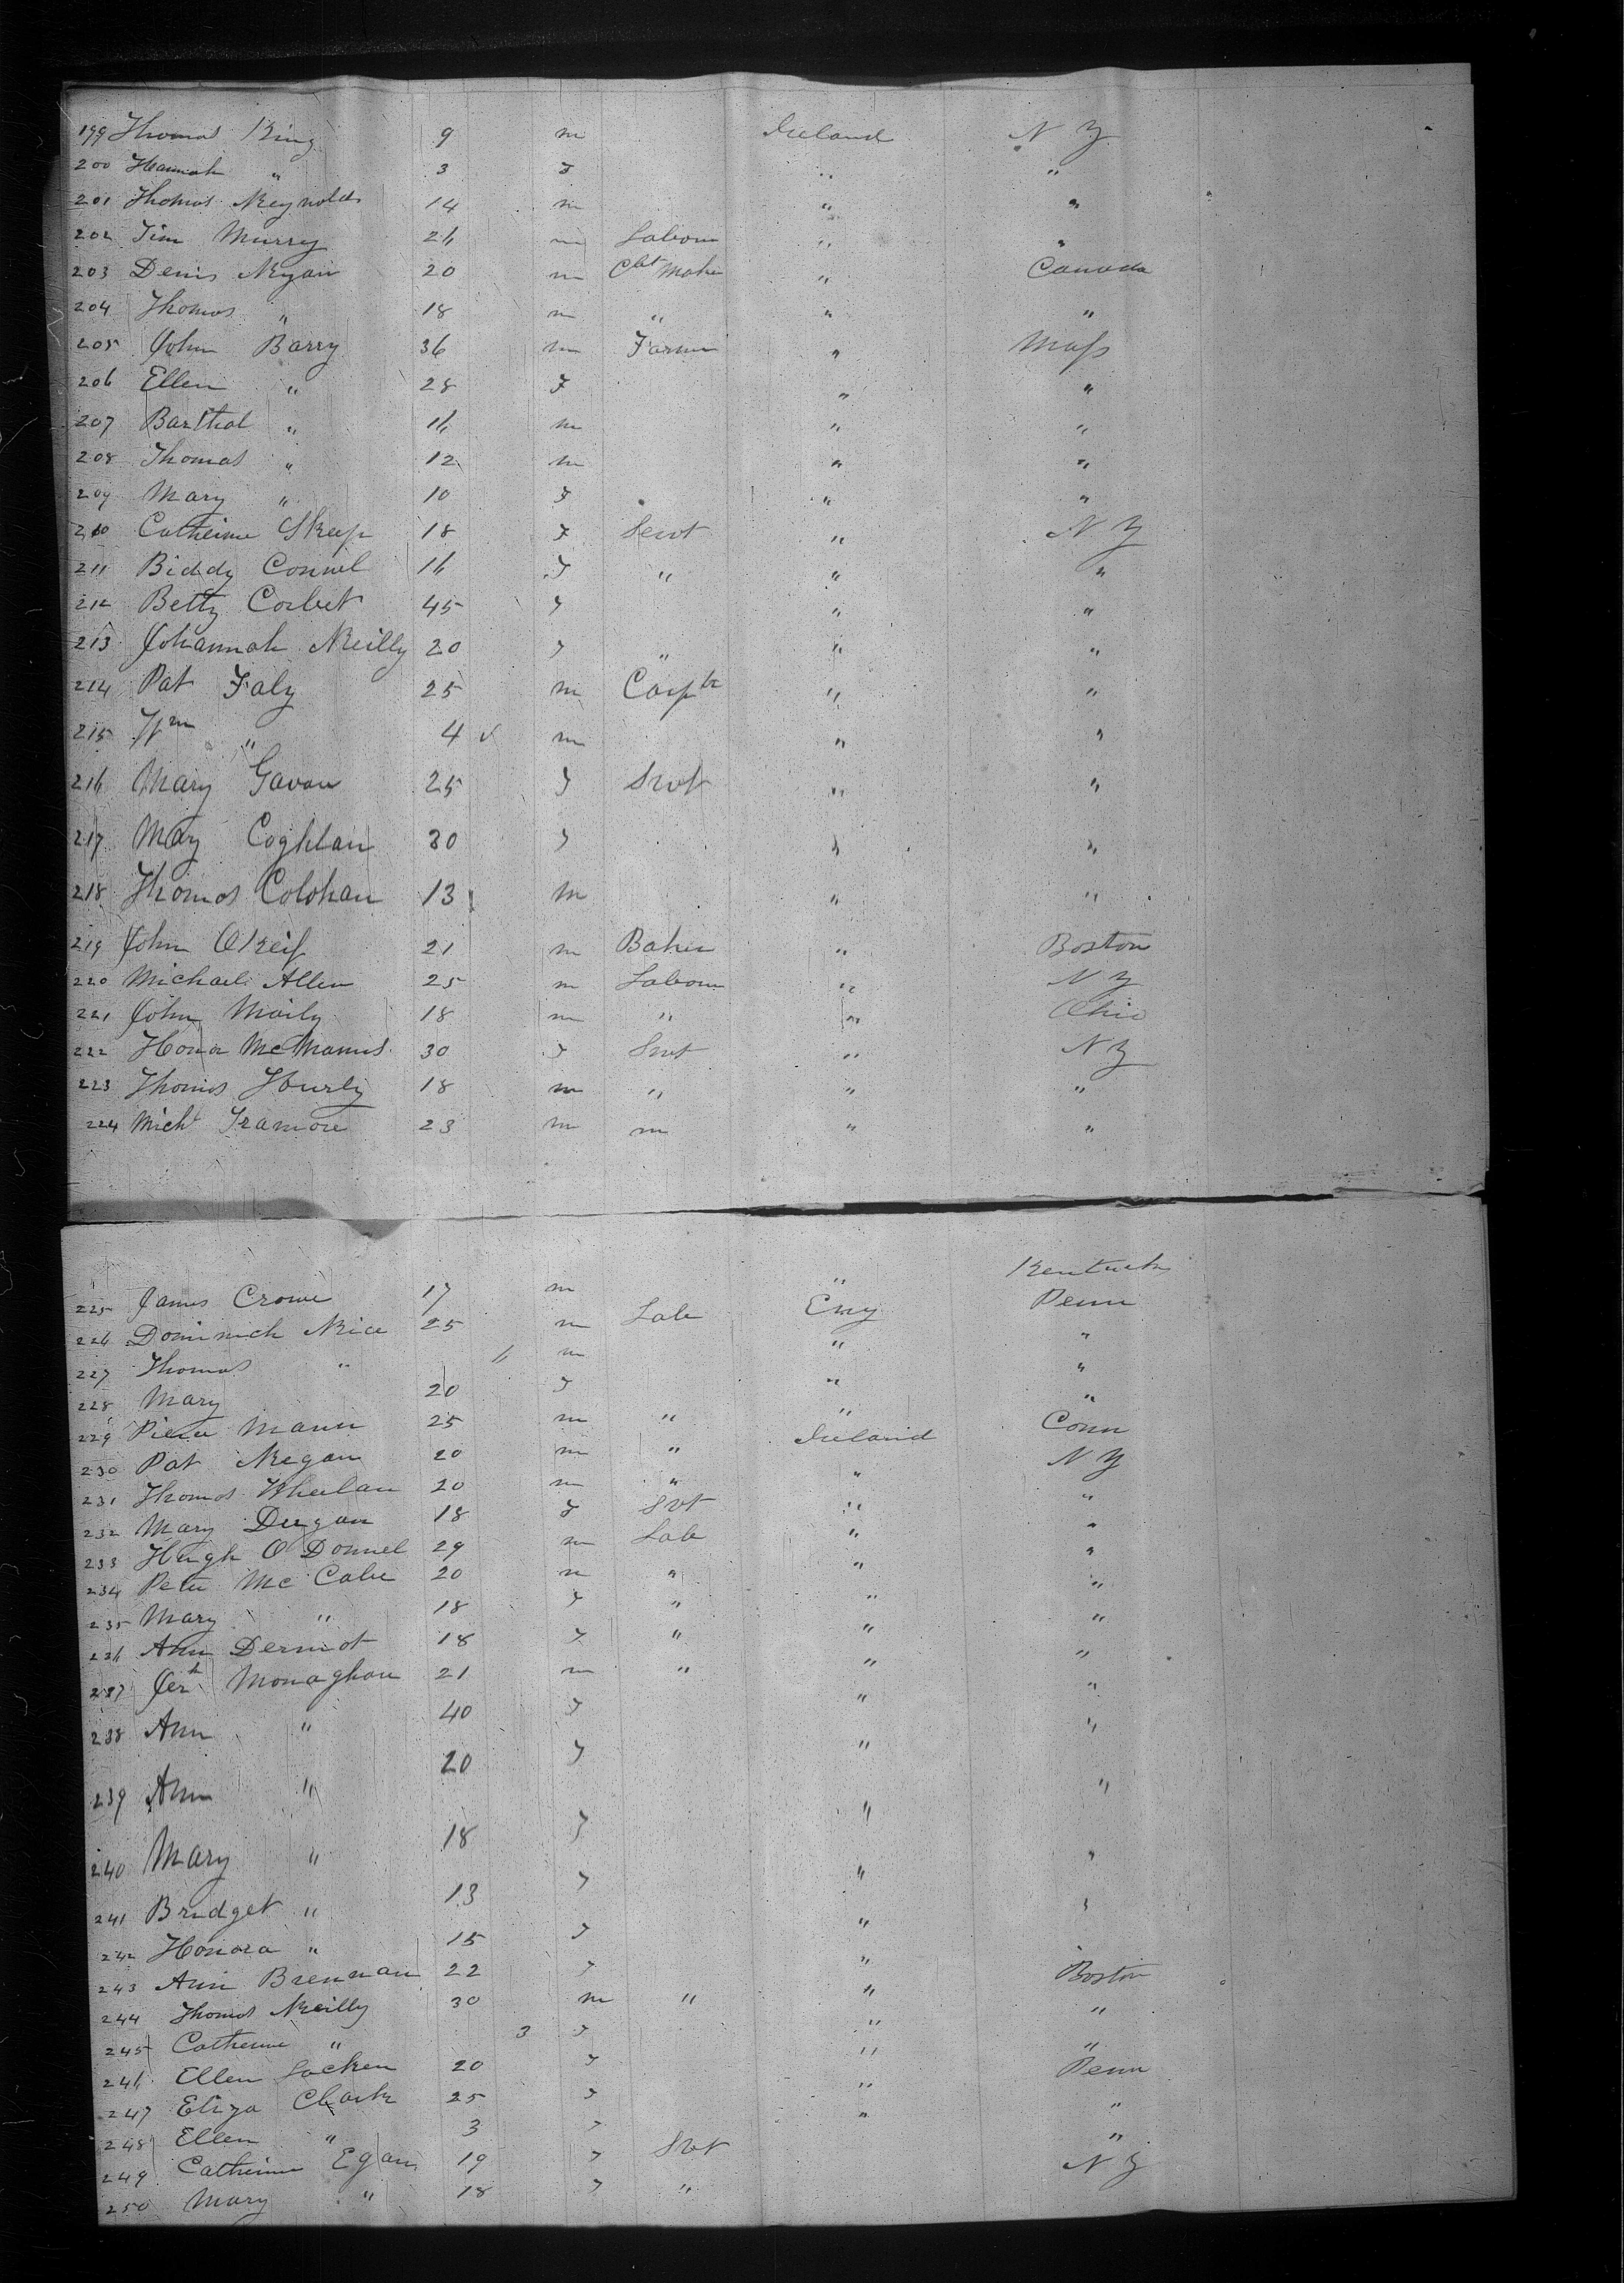 199 Thomas King 9 m Ireland N Y
200 Hannah " 3 F " "
201 Thomas Reynolds 14 m " "
202 Jim Murry 26 m Labour " "
203 Denis Ryan 20 m Cbt Maker " Canada
204 Thomas " 18 m " " "
205 John Barry 36 m Farmer " Mass
206 Ellen " 28 F " "
207 Barthol " 16 m " "
208 Thomas " 12 m " "
209 Mary " 10 F " "
210 Catherine Skeep 18 F Servt " N Y
211 Biddy Connel 16 F " " "
212 Betty Corbet 45 F " "
213 Johannah Reilly 20 F " " "
214 Pat Faly 25 m Carptr " "
215 Wm " 4 m " "
216 Mary Gavan 25 F Srvt " "
217 Mary Coghlan 30 F " "
218 Thomas Colohan 13 m " "
219 John OKeif 21 m Baker " Boston
220 Michael Allen 25 m Labour " N Y
221 John Maily 18 m " " Ohio
222 Honor McManus 30 F Srvt " N Y
223 Thomas Hurly 18 m " " "
224 Michl Tramore 23 m m " "
225 James Crowe 17 m " Kentucky
226 Dominick Rice 25 m Lab Eng Penn
227 Thomas " 11 m " "
228 Mary 20 F " "
229 Pierce Mann 25 m " " "
230 Pat Regan 20 m " Ireland Conn
231 Thomas Whelan 20 m " " N Y
232 Mary Dugan 18 F Svt " "
233 Hugh O Donnel 29 m Lab " "
234 Peter Mc Cabe 20 m " " "
235 Mary " 18 F " " "
236 Ann Dermot 18 F " " "
237 Jerh Monaghan 21 m " " "
238 Ann " 40 F " "
239 Ann " 20 F " "
240 Mary " 18 F " "
241 Bridget " 13 F " "
242 Honora " 15 F " "
243 Ann Brennan 22 F " Boston
244 Thomas Reilly 30 m " " "
245 Catherine " 3 F " "
246 Ellen Lacken 20 F " Penn
247 Eliza Clark 25 F " "
248 Ellen " 3 F " "
249 Catherine Egan 19 F Svt N Y
250 Mary " 18 F "